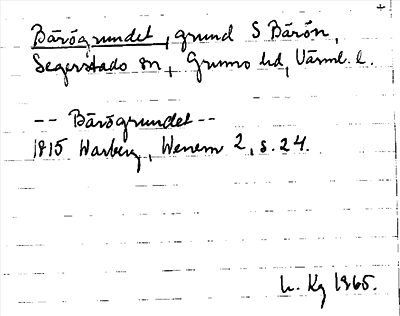 Bäröгrundet, grund S Bärön,
Segerstads sn, Grums hd, Värml. l.
-- Bärögrundet --
1815 Warberg, Wenern 2, s. 24.
h. Kg 1965.